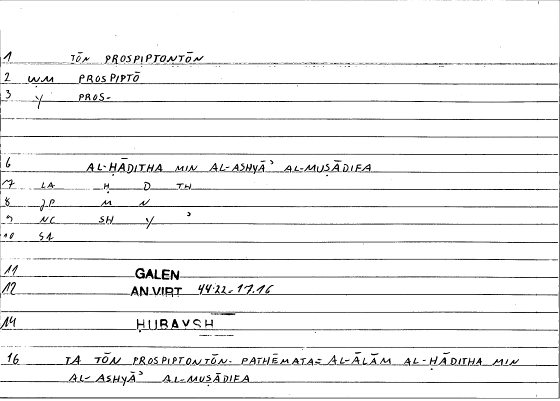 1 TŌN PROSPIPTONTŌN
2 WM PROSPIPTŌ
3 Y PROS-
6 AL-ḤĀDITHA MIN AL-ASHYĀʾ AL-MUṢĀDIFA
7 LA Ḥ D TH
8 JP M N
9 NC SH Y ʾ
10 SA
11 GALEN
12 AN.VIRT 44.22-17.16
14 ḤUBAYSH
16 TA TŌN PROSPIPTONTŌN. PATHĒMATA= AL-ĀLĀM AL-ḤĀDITHA MIN
AL-ASHYĀʾ AL-MUṢĀDIFA